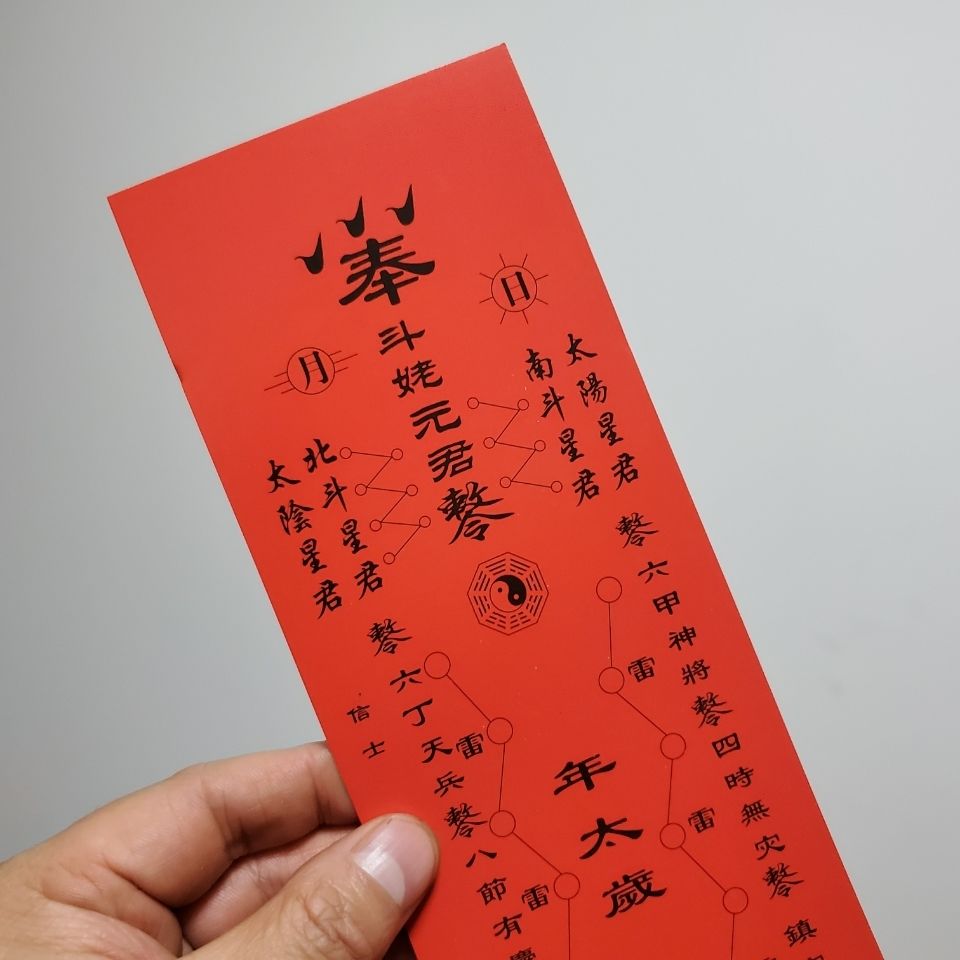 奉斗姥元君敕令
日
太陽星君
南斗星君
月
北斗星君
太陰星君
敕令六甲神將敕令四時無灾敕令鎮
雷
雷
年太歲
雷
雷
敕令六丁天兵敕令八節有慶
信士